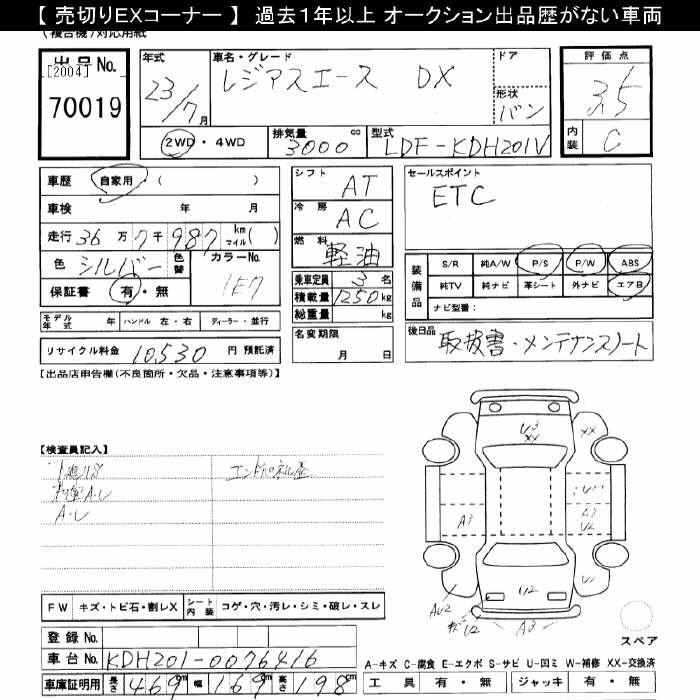 【 売切りEXコーナー 】 過去1年以上 オークション出品歴がない車両
(複合機)対応用紙
出品 No.
[2004]
70019
年式
23/7月
車名・グレード
レジアスエース DX
ドア
形状
バン
評価点
3.5
内装
C
2WD・4WD
排気量 3000 cc
型式 LDF-KDH201V
車歴 自家用・( )
車検 年 月
走行 36万7千987 km(マイル)
色 シルバー 色替 カラーNo. 1E7
保証書 有・無
モデル年式 年 ハンドル 左・右 ディーラー・並行
リサイクル料金 10,530 円 預託済
シフト AT
冷房 AC
燃料 軽油
乗車定員 3 名
積載量 1250 kg
総重量 kg
名変期限
月 日
セールスポイント
ETC
装備品
S/R 純A/W P/S P/W ABS
純TV 純ナビ 革シート 外ナビ エアB
ナビ型番:
後日品 取扱書・メンテナンスノート
【出品店申告欄(不良箇所・欠品・注意事項等)】
【検査員記入】
A・U
FW キズ・トビ石・割レX シート内装 コゲ・穴・汚レ・シミ・破レ・スレ
登録 No.
車台 No. KDH201-0076416
車庫証明用 長さ 469 cm 幅 169 cm 高さ 198 cm
U3
XX
XX
A3
A3
U2
U2
U2
A3
スペア
A-キズ C-腐食 E-エクボ S-サビ U-凹ミ W-補修 XX-交換済
工具 有・無 ジャッキ 有・無